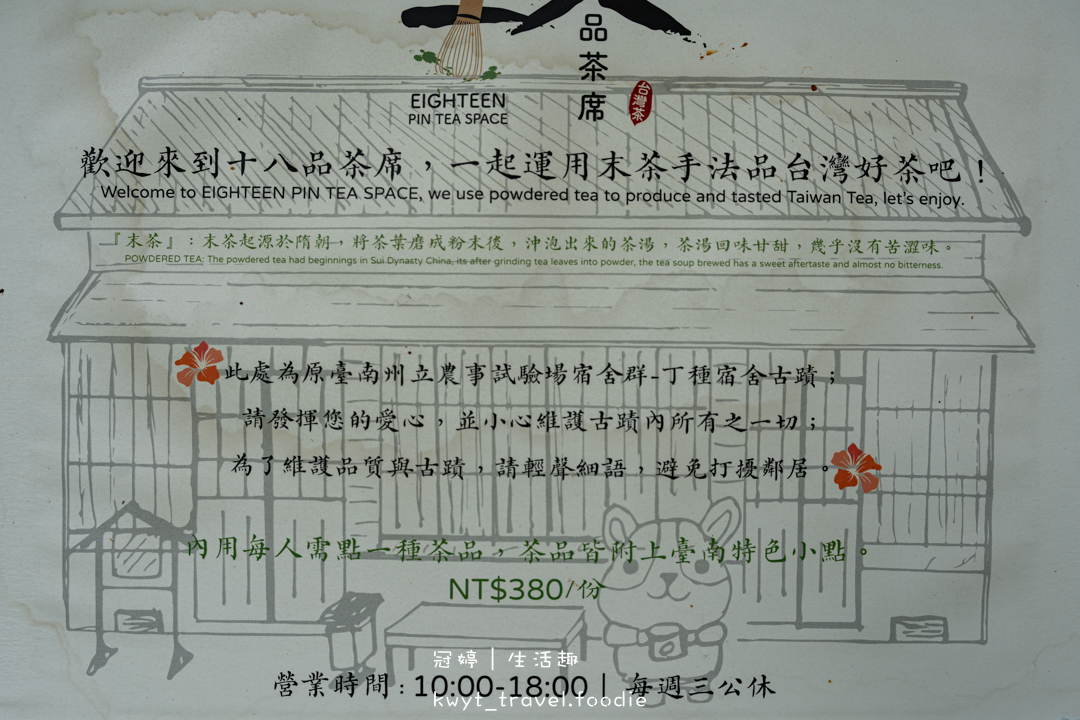 品茶席
台灣茶
EIGHTEEN
PIN TEA SPACE
歡迎來到十八品茶席，一起運用末茶手法品台灣好茶吧！
Welcome to EIGHTEEN PIN TEA SPACE, we use powdered tea to produce and tasted Taiwan Tea, let's enjoy.
『末茶』：末茶起源於隋朝，將茶葉磨成粉末後，沖泡出來的茶湯，茶湯回味甘甜，幾乎沒有苦澀味。
POWDERED TEA: The powdered tea had beginnings in Sui Dynasty China, its after grinding tea leaves into powder, the tea soup brewed has a sweet aftertaste and almost no bitterness.
此處為原臺南州立農事試驗場宿舍群-丁種宿舍古蹟；
請發揮您的愛心，並小心維護古蹟內所有之一切；
為了維護品質與古蹟，請輕聲細語，避免打擾鄰居。
內用每人需點一種茶品，茶品皆附上臺南特色小點。
NT$380/份
冠婷｜生活趣
營業時間：10:00-18:00｜每週三公休
kwyt_travel.foodie